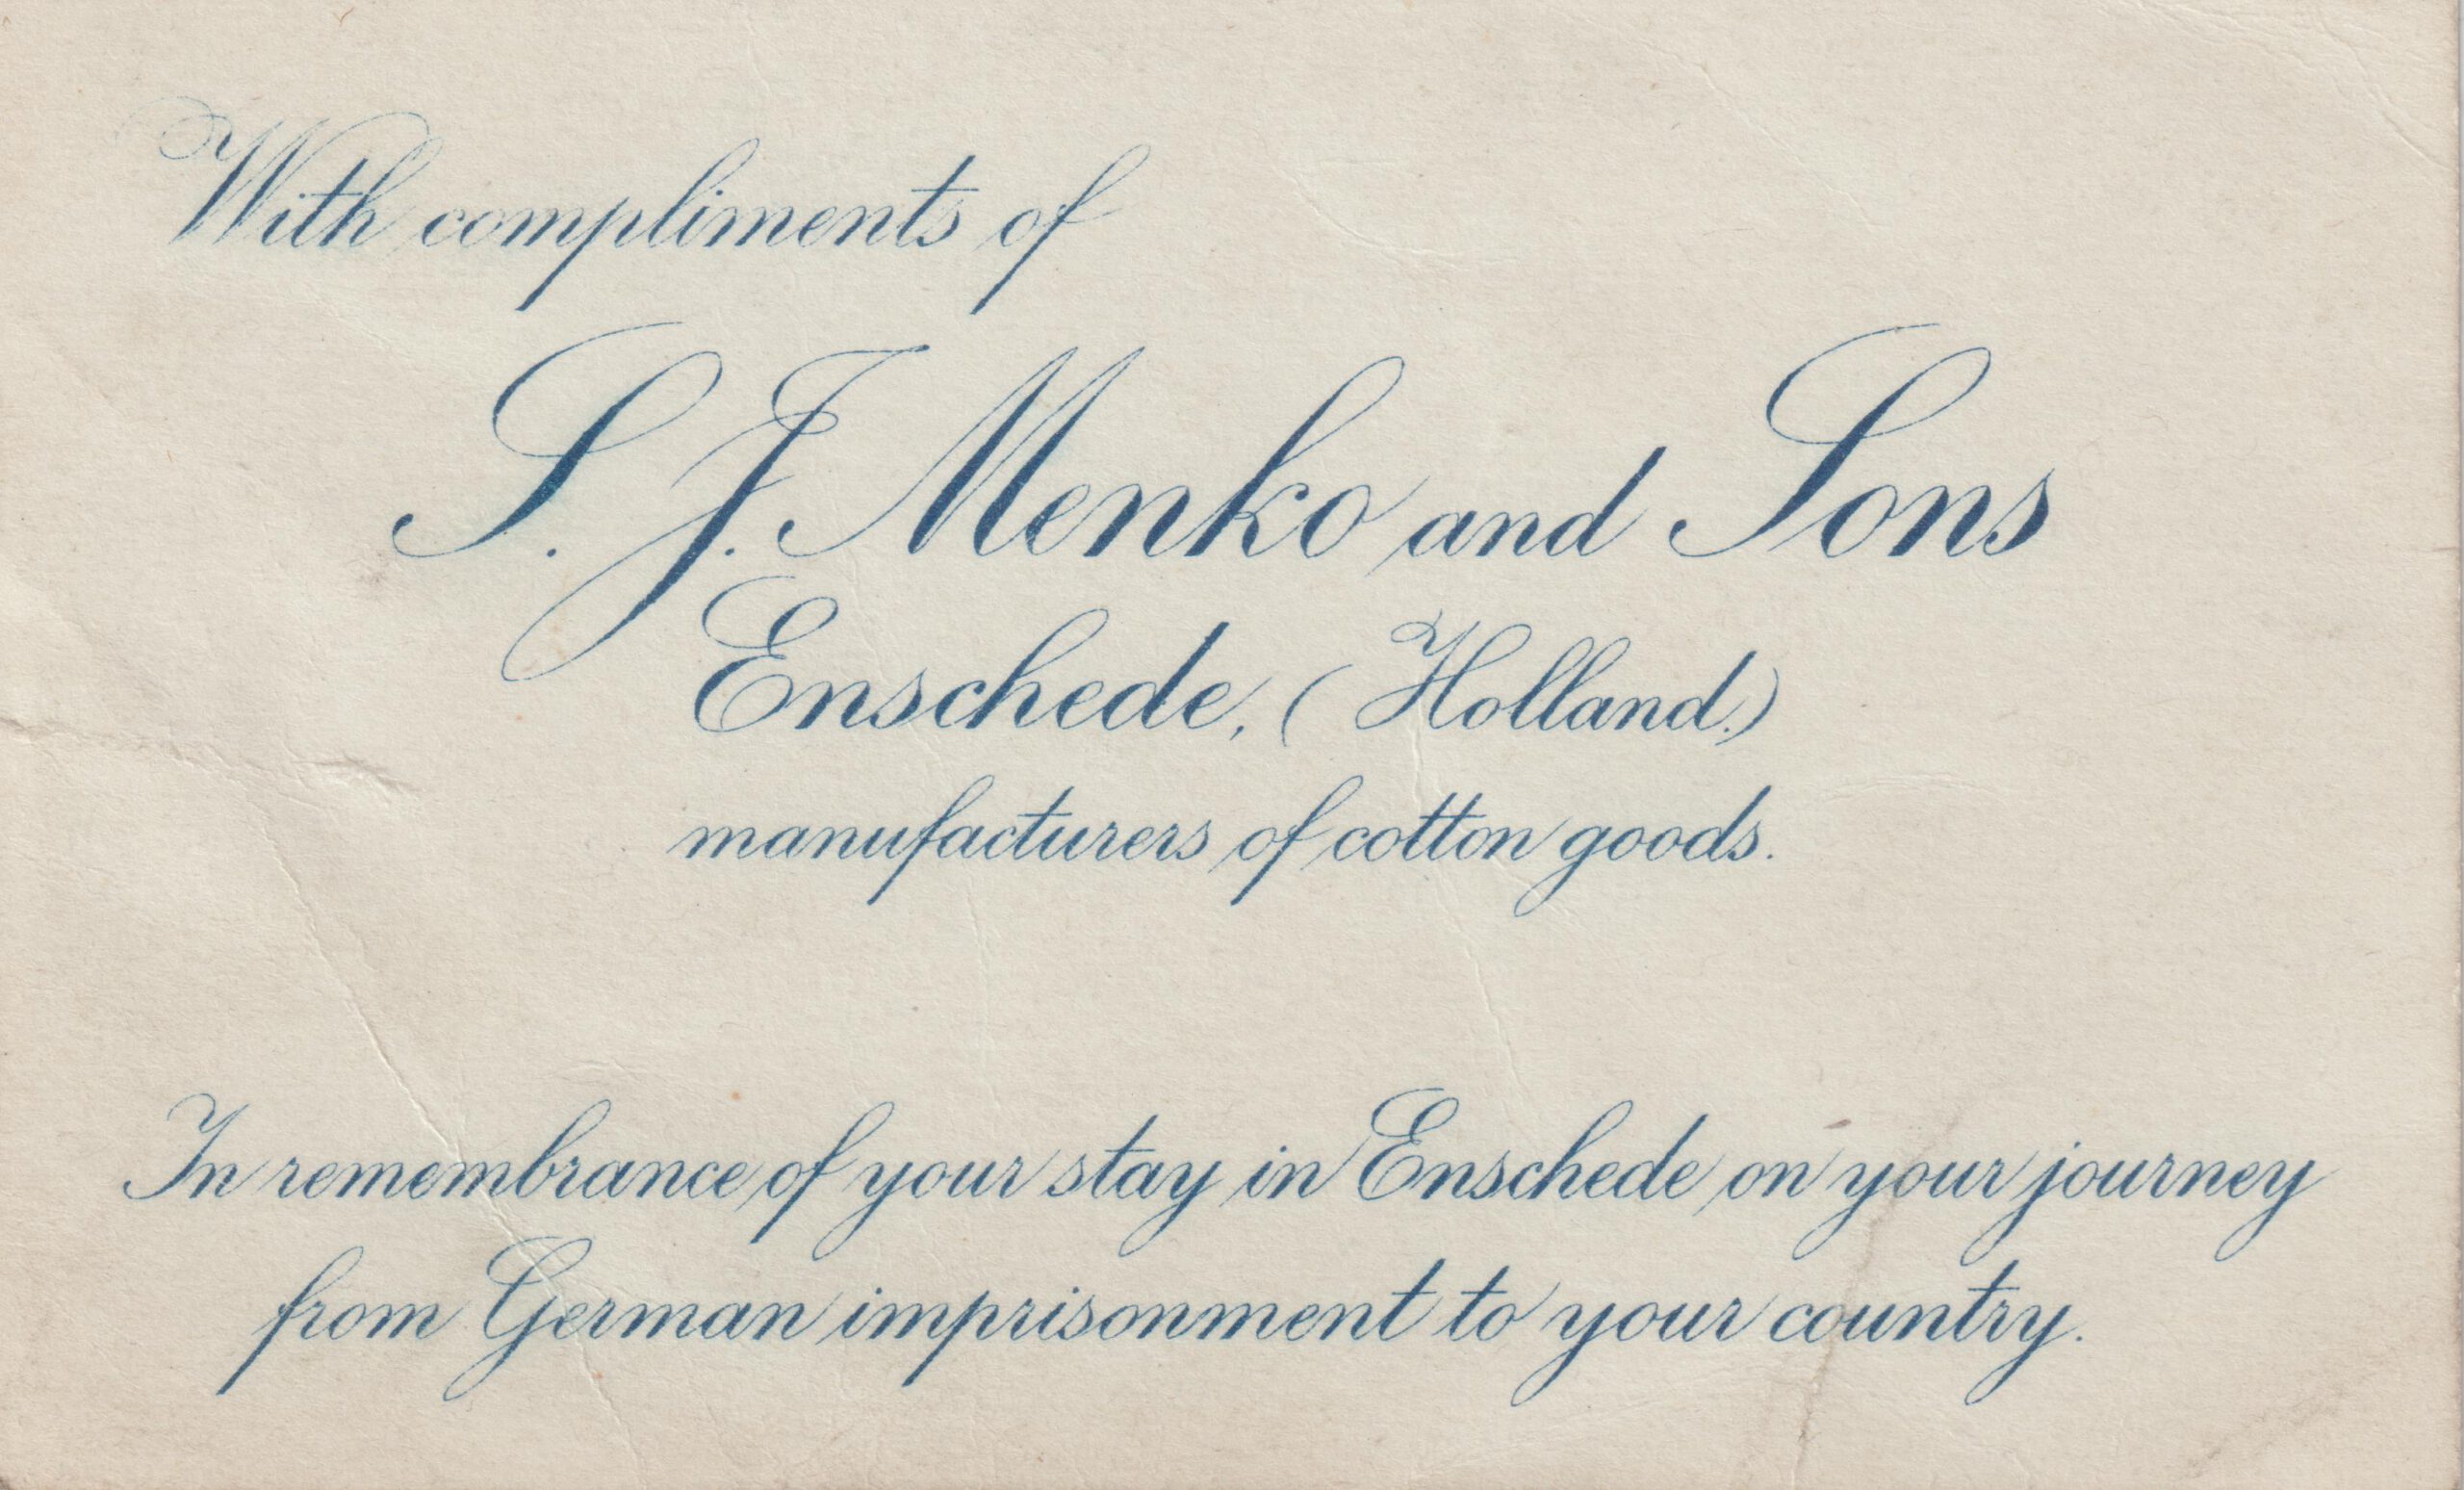 With compliments of
S. J. Menko and Sons
Enschede, (Holland.)
manufacturers of cotton goods.
In remembrance of your stay in Enschede on your journey
from German imprisonment to your country.